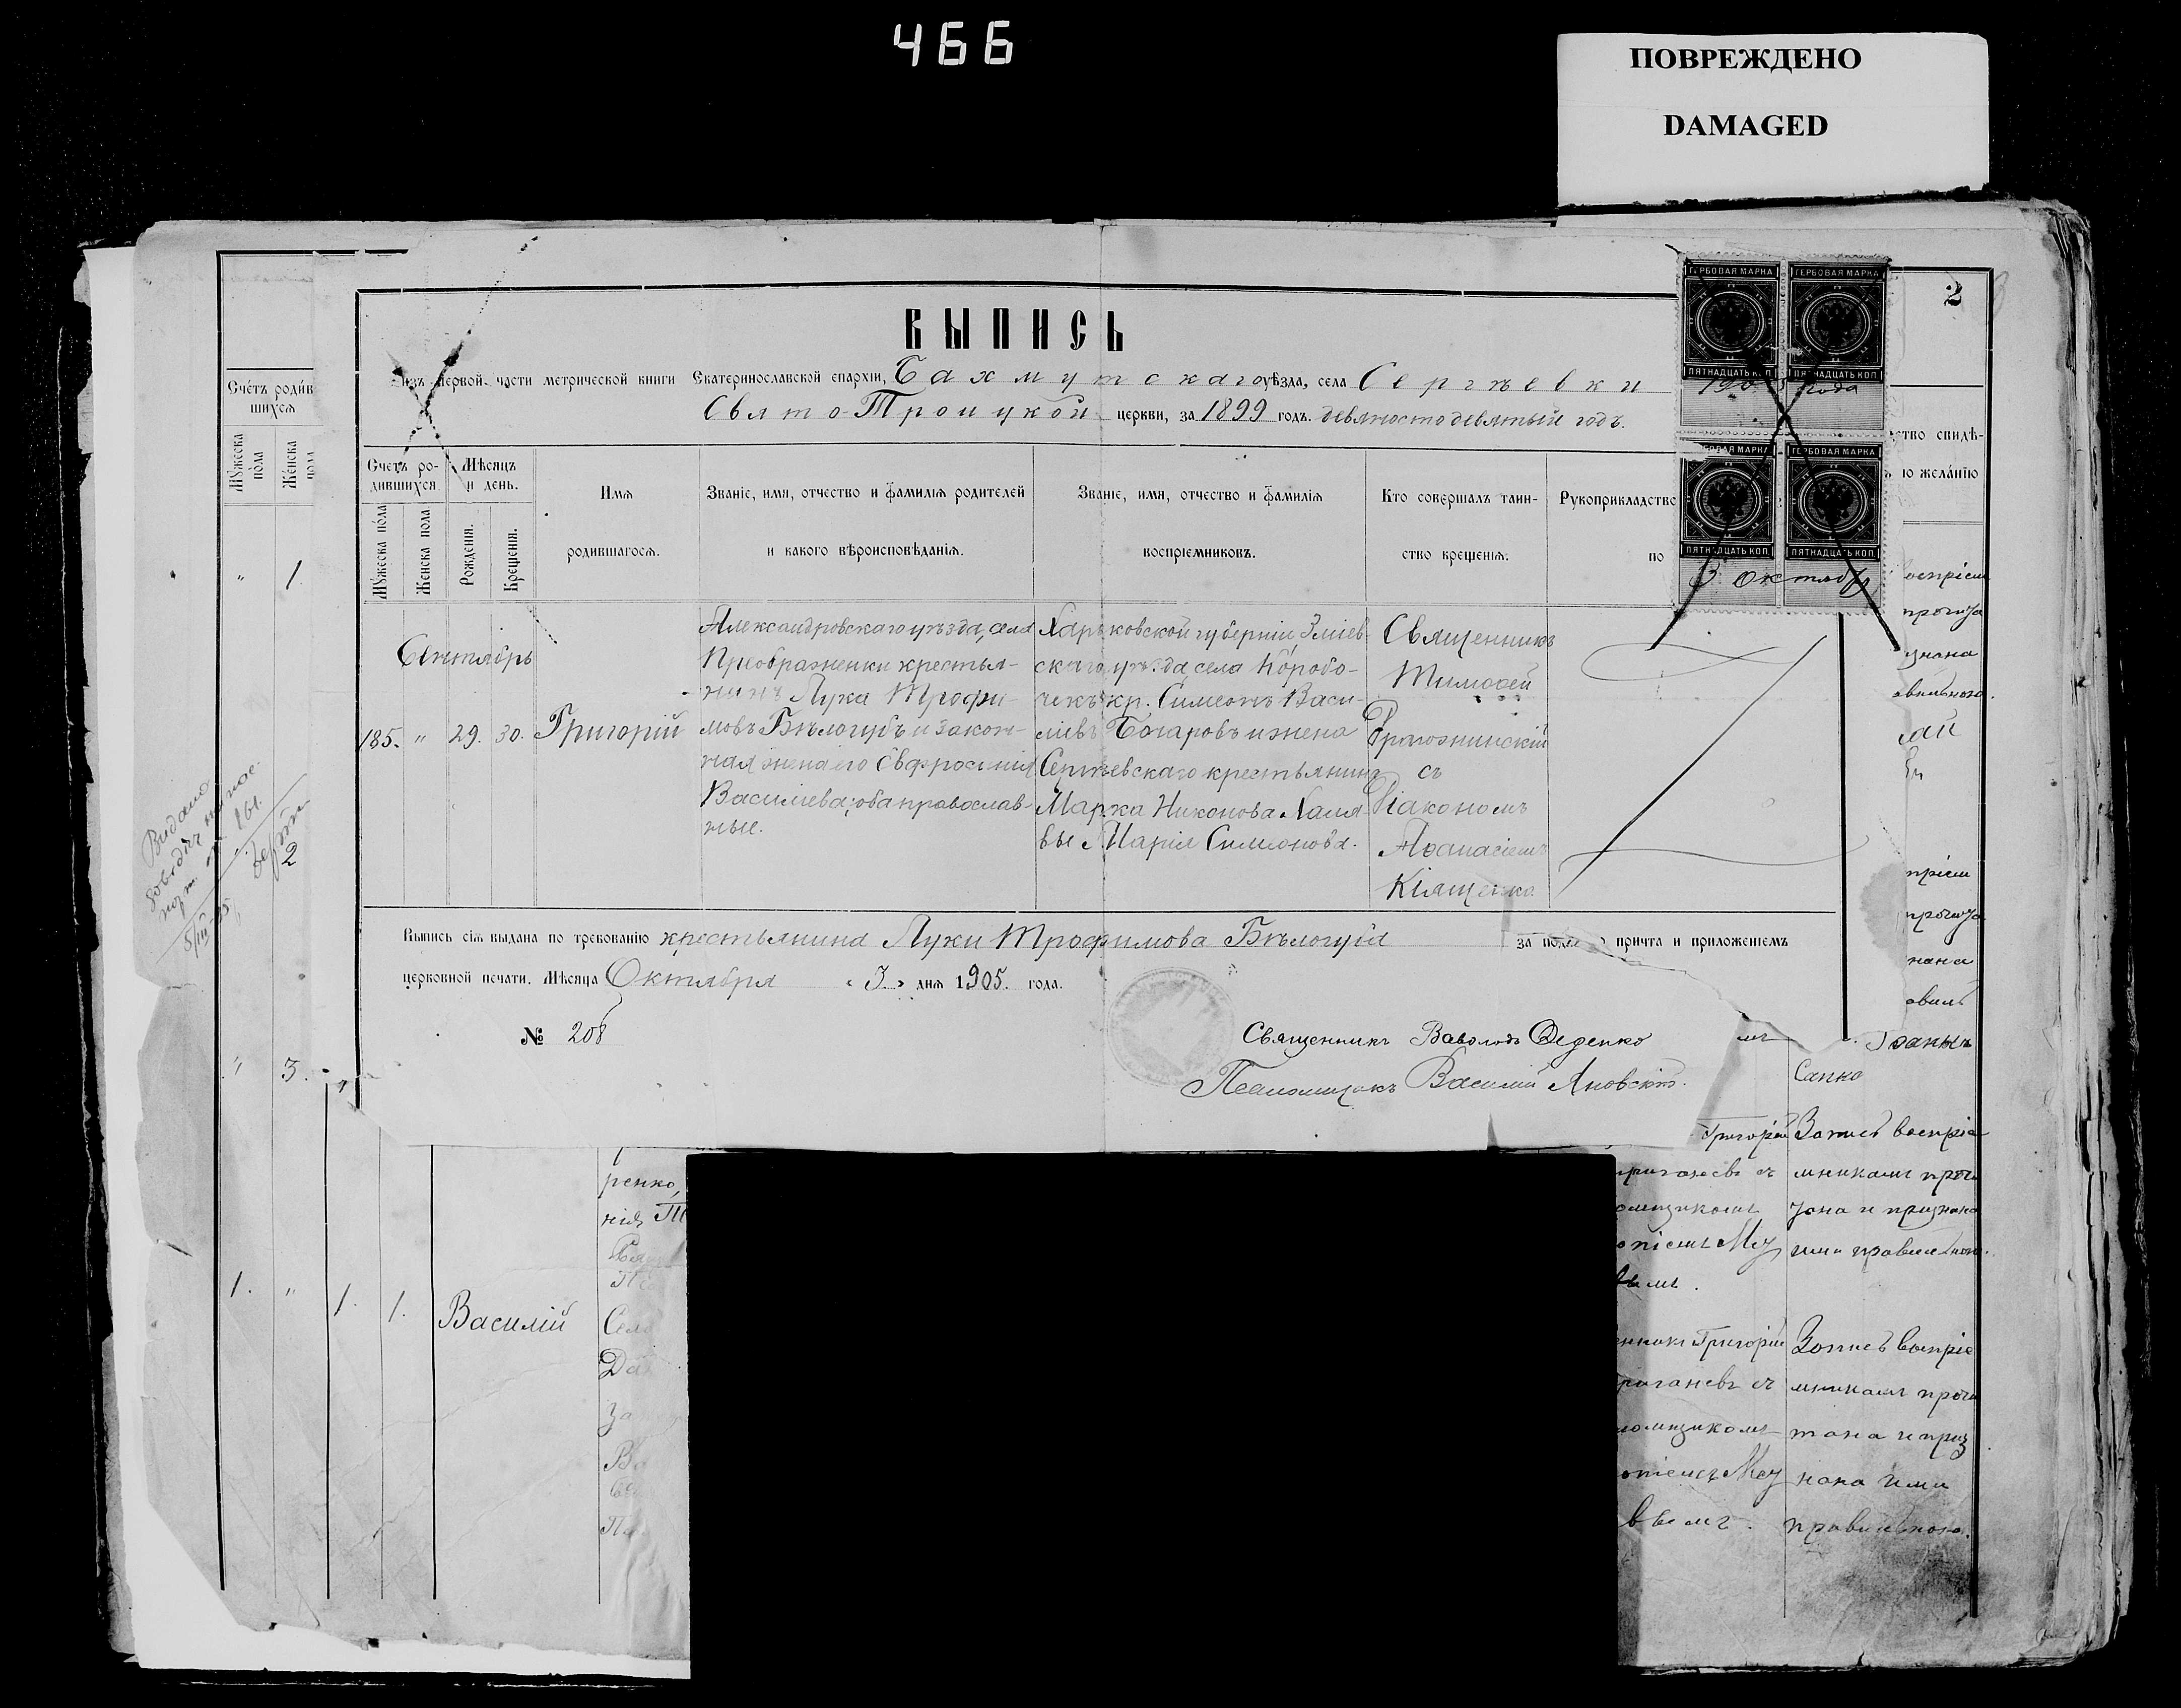 466
ПОВРЕЖДЕНО
DAMAGED
2
ВЫПИСЬ
изъ первой части метрической книги Екатеринославской епархіи, Бахмутскаго уѣзда, села Сергѣевки
Свято-Троицкой церкви, за 1899 годъ. девяносто девятый годъ.
ГЕРБОВАЯ МАРКА ГЕРБОВАЯ МАРКА
ПЯТНАДЦАТЬ КОП. ПЯТНАДЦАТЬ КОП.
года
ГЕРБОВАЯ МАРКА ГЕРБОВАЯ МАРКА
ПЯТНАДЦАТЬ КОП. ПЯТНАДЦАТЬ КОП.
3 октября
Счетъ ро-
дившихся.
Мужеска пола
Женска пола
Мѣсяцъ
и день.
Рожденія.
Крещенія.
Имя
родившагося.
Званіе, имя, отчество и фамилія родителей
и какого вѣроисповѣданія.
Званіе, имя, отчество и фамилія
воспріемниковъ.
Кто совершалъ таин-
ство крещенія.
Рукоприкладство
по
Сентябрь
185. " 29. 30. Григорій
Александровскаго уѣзда, села
Преображенки крестья-
нинъ Лука Трофи-
мовъ Бѣлогубъ и закон-
ная жена его Евфросинія
Василіева; оба православ-
ные.
Харьковской губерніи Зміев-
скаго уѣзда, села Коробо-
чекъ кр. Симеонъ Васи-
ліевъ Бочаровъ и жена
Сергѣевскаго крестьянина
Марка Никонова Халя-
вы Марія Симеонова.
Священникъ
Тимофей
съ
Діакономъ
Аѳанасіемъ
Кіященко
Выпись сія выдана по требованію крестьянина Луки Трофимова Бѣлогуба за подп о причта и приложеніемъ
церковной печати. Мѣсяца Октября « 3 » дня 1905. года.
№ 208
Священникъ Деденко
Псаломщикъ Василій Яновскій.
Счéтъ роди́в
шихся
Мужеска
по́ла
Же́нска
пола
" 1.
2
" 3.
1. " 1. 1. Василій
ренко,
нія
Село
ство свидѣ-
ю жела́нію
воспріем
прочита
знана
авильною.
пріем
прочита
нана
авиль
Сапко
Григорій Запись воспріе
мникамъ прочи
тана и признана
ими правильною.
Мау
нникъ Григорій Запись воспріе
мникамъ прочи
омщикомъ тана и приз
Мау нана ими
правильною.